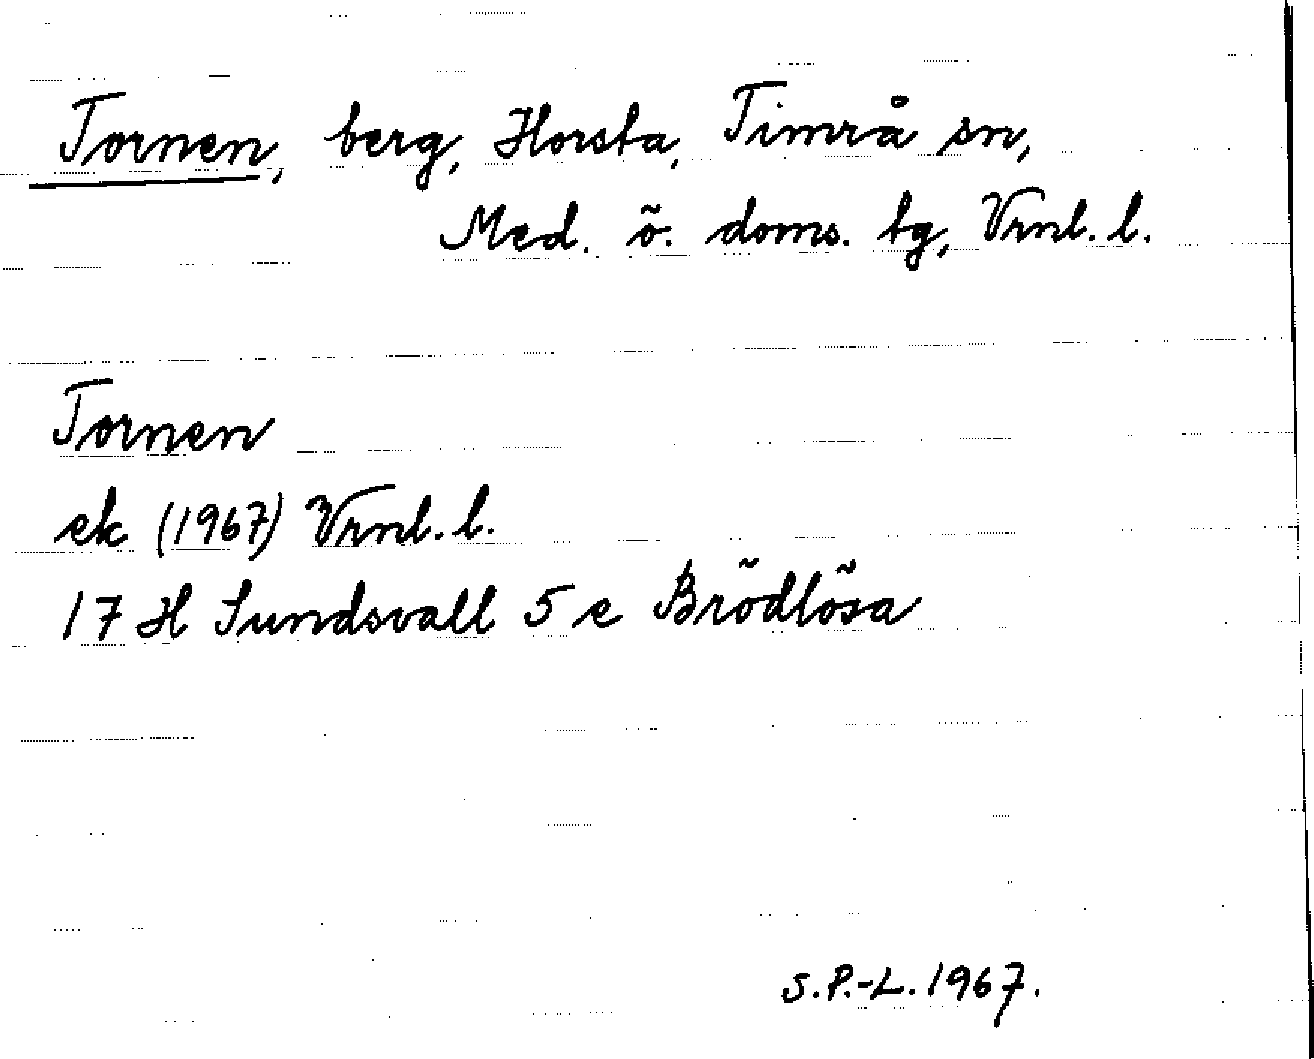 Tornen, berg, Horsta, Timrå sn,
Med. ö. doms. tg, Vrnl. l.
Tornen
ek (1967) Vrnl. l.
17 H Sundsvall 5 e Brödlösa
S.P.-L. 1967.